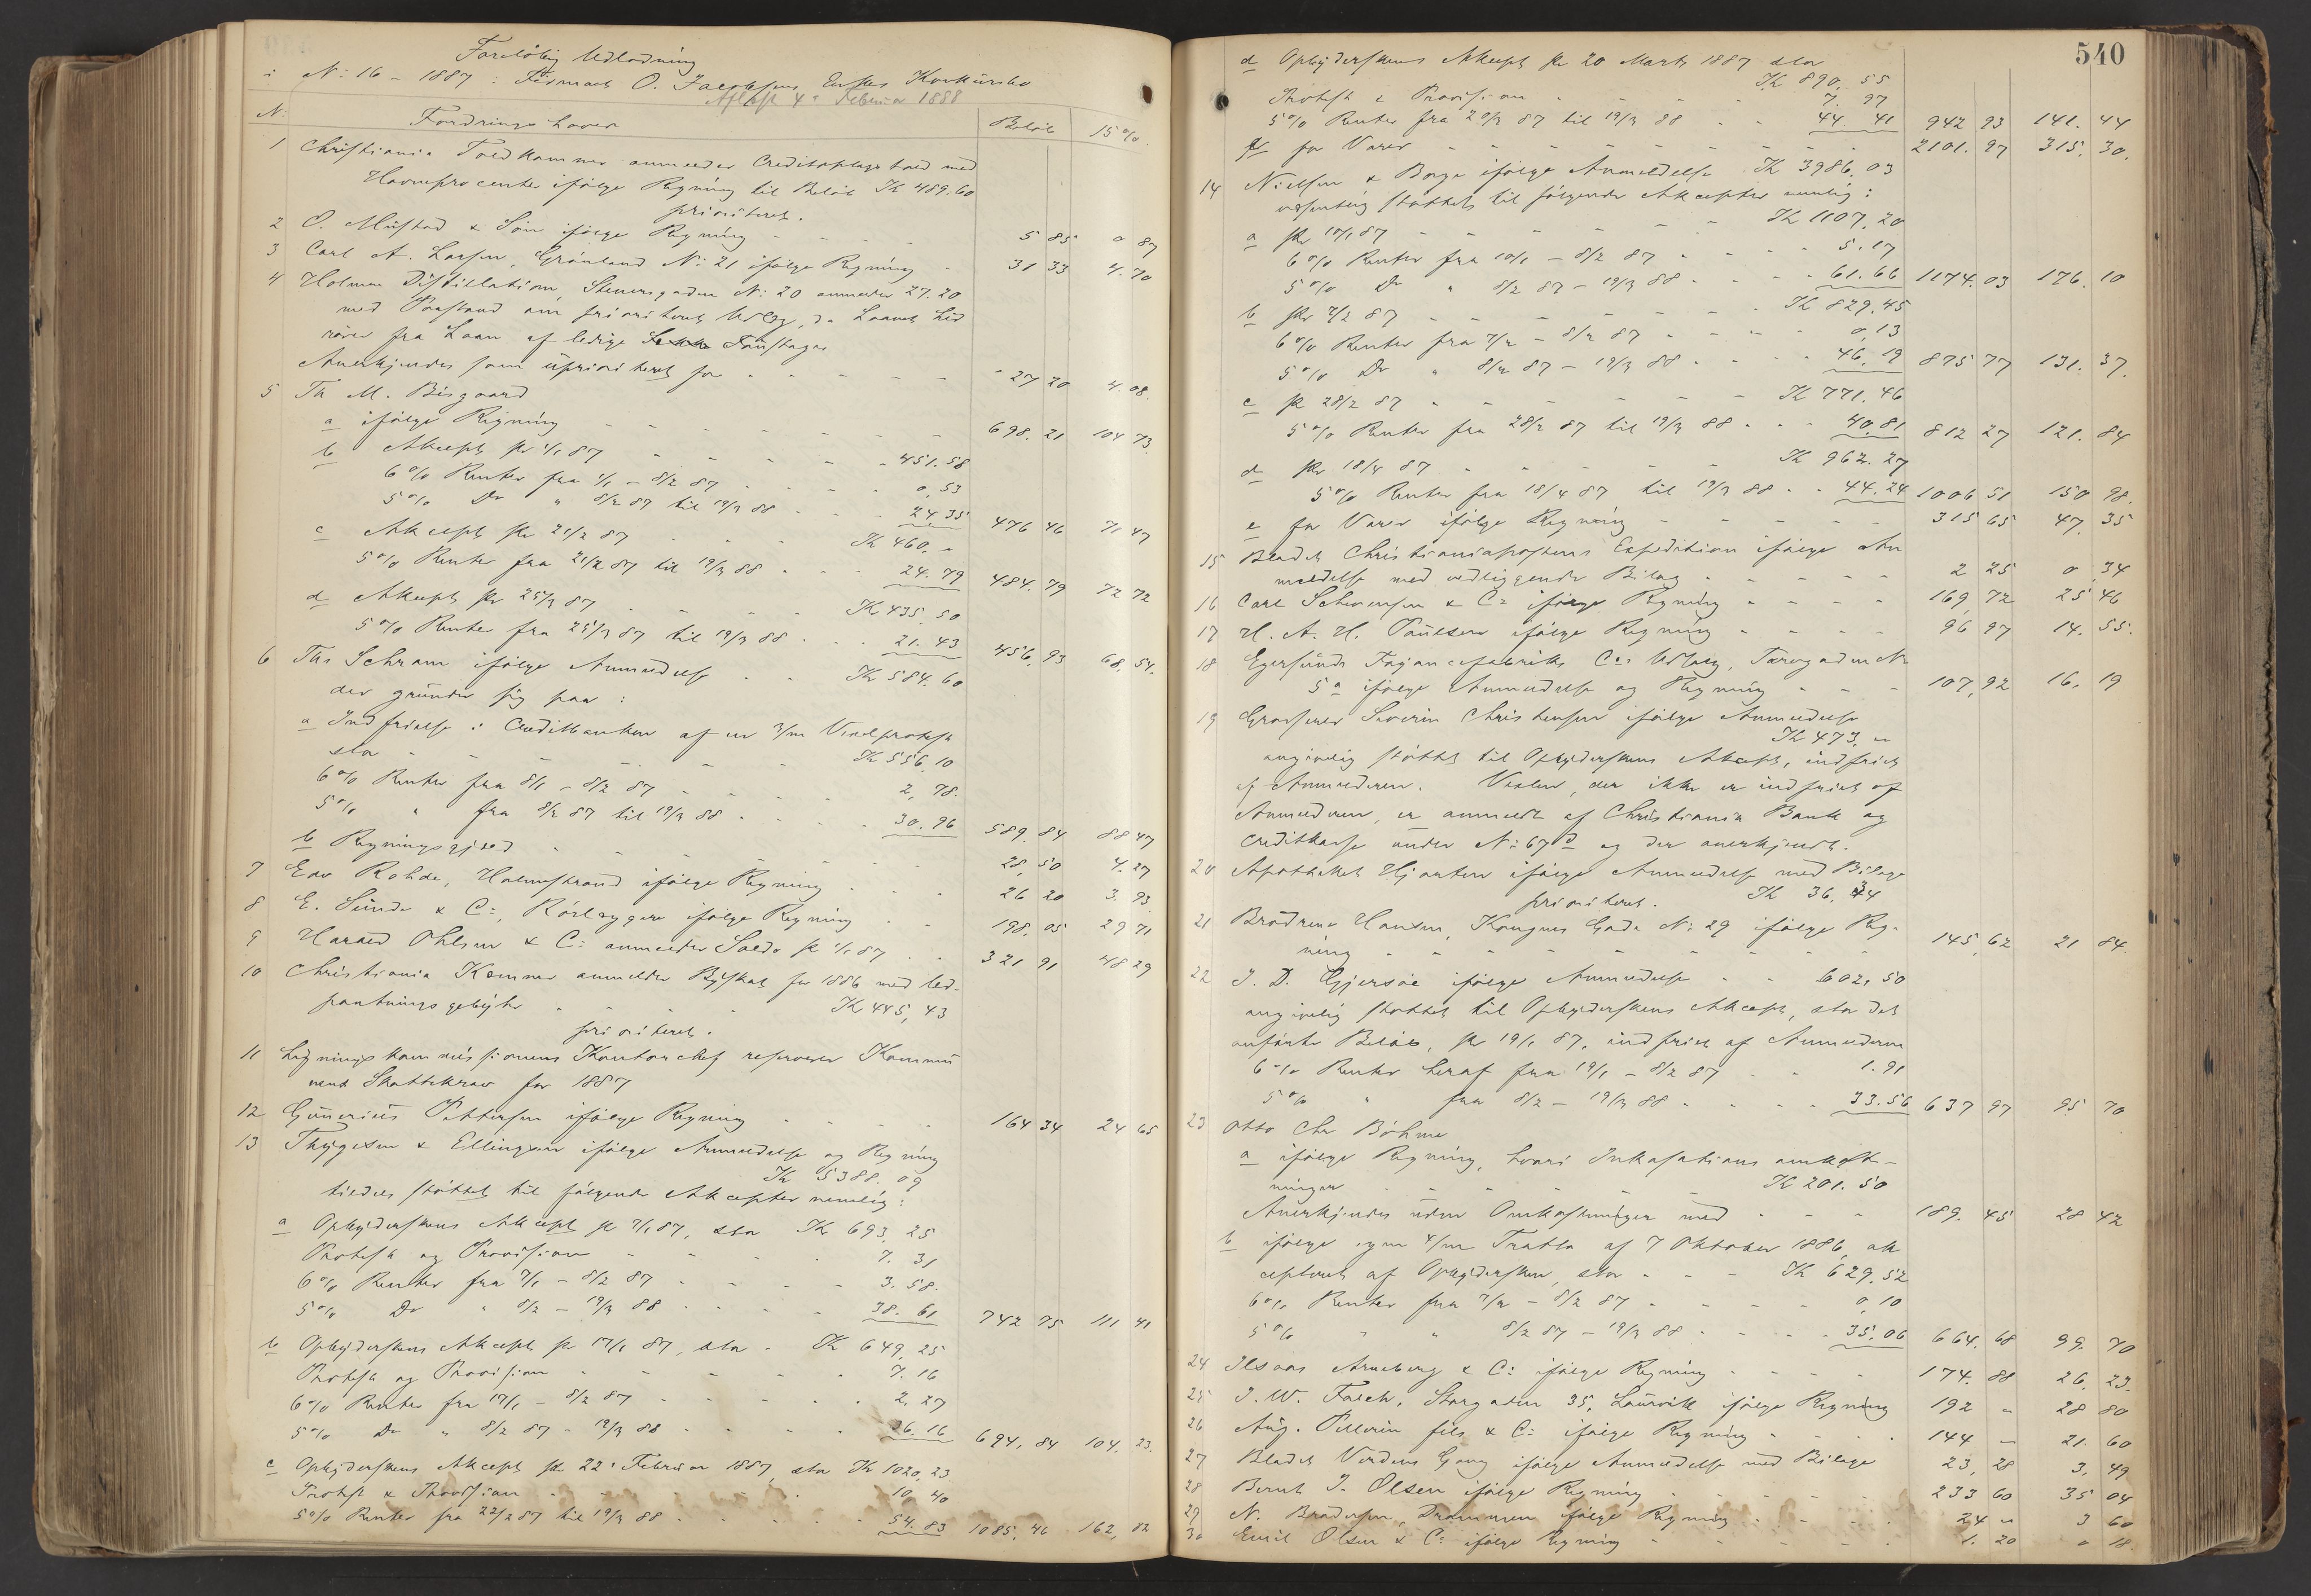 Foreløbig Udlodning
i No: 16 - 1887: Firmaet O. Jacobsens Enkes Konkursbo
Afslut. 4de Februar 1888
N. Fordringshaver Beløb 15%
1 Christiania Toldkammer anmelder Creditoplagstold med
Havneprocenter ifølge Regning til Beløb Kr 489.60
prioriteret.
2 O. Mustad & Søn ifølge Regning - - - 5 85 0 87
3 Carl A. Larsen, Grønland No: 21 ifølge Regning - 31 33 4.70
4 Holmen Distillation, Stenersgaden No: 20 anmelder 27.20
med Paastand om prioriteret Udlæg, da Kravet hid
rører fra Laan af ledige Fustager
Anerkjendes som uprioriteret for - - - - - 27 20 4.08.
5 Th M. Bisgaard
a ifølge Regning - - - - - - 698.21 104 73.
b Akcept pr 4/1 87 - - - - 451.58
6% Renter fra 4/1 - 8/2 87 - - - - 0,53
5% Do " 8/2 87 til 19/3 88 - - - 24,35 476 46 71 47
c Akcept pr 21/2 87 - - - - Kr 460. -
5% Renter fra 21/2 87 til 19/3 88 - - - 24.79 484.79 72 72
d Akcept pr 25/3 87 - - - Kr 435,50
5% Renter fra 25/3 87 til 19/3 88 - 21.43 456,93 68,54.
6 Ths Schram ifølge Anmeldelse - - Kr 584.60
der grunder sig paa:
a Indfrielse i Creditbanken af en 3/m Vexelprotest
stor - - - - - Kr 556.10
6% Renter fra 8/1 - 8/2 87 - - - 2,78.
5% " fra 8/2 87 til 19/3 88 - - - - 30.96 589.84 88 47
b Regningsgjæld - - - - - - 28,50 4.27
7 Edv Rohde, Holmestrand ifølge Regning - - - 26 20 3.93
8 E. Sunde & Co:, Rørlæggere ifølge Regning - 198,05 29 71
9 Harald Ohlsen & Co: anmelder Saldo pr 1/1 87 - - 321 91 48 29
10 Christiania Kemner anmelder Byskat for 1886 med Ud-
pantningsgebyhr - - - - Kr 445,43
prioriteret.
11 Ligningskommissionens Kontorchef reserverer Kommu
nens Skattekrav for 1887
12 Gunerius Pettersen ifølge Regning - - - - - 164 34 24 65
13 Thygesen & Ellingsen ifølge Anmeldelse og Regning
Kr 5388.09
tildels støttet til følgende Akcepter nemlig:
a Opbyderskens Akcept pr 7/1 87, stor Kr 693,25
Protest og Provision - - - - 7.31
6% Renter fra 7/1 - 8/2 87 - - - - 3.58.
5% Do " 8/2 - 19/3 88 - - - - 38.61 742 75 111 41
b Opbyderskens Akcept pr 17/1 87, stor - Kr 649,25
Protest og Provision - - - - - 7.16
6% Renter fra 17/1 - 8/2 87 - - - - 2,27
5% Do " 8/2 87 - 19/3 88 - - - - 36.16 694,84 104.23.
c Opbyderskens Akcept pr 22de Februar 1887, stor Kr 1020,23
Protest & Provision - - - - 10,40
5% Renter fra 22/2 87 til 19/3 88 - - - - 54.83 1085,46 162,82
540
d Opbyderskens Akcept pr 20 Marts 1887 stor
Kr 890.55
Protest & Provision - - - - 7.97
5% Renter fra 20/3 87 til 19/3 88 - - 44.41 942 93 141.44
for Varer - - - - - - - 2101.97 315.30.
14 Nielsen & Borge ifølge Anmeldelse Kr 3986.03
væsentlig støttet til følgende Akcepter nemlig:
a pr 10/1 87 - - - - - - Kr 1107,20
6% Renter fra 10/1 - 8/2 87 - - - - 5.17
5% Do " 8/2 87 - 19/3 88 - - - 61.66 1174.03 176.10
b pr 7/2 87 - - - - - - Kr 829.45
6% Renter fra 7/2 - 8/2 87 - - - - 0,13
5% Do " 8/2 87 - 19/3 88 - - - - 46.19 875 77 131.37.
c pr 28/2 87 - - - - - - Kr 771.46
5% Renter fra 28/2 87 til 19/3 88 - - - 40.81 812 27 121.84
d pr 18/4 87 - - - - - Kr 962.27
5% Renter fra 18/4 87 til 19/3 88 - - 44.24 1006 51 150 98.
e for Varer ifølge Regning - - - - - 315 65 47.35
15 Bladet Christianiapostens Expedition ifølge An
meldelse med vedliggende Bilag - - - - - 2 25 0 34
16 Carl Schwensen & Co: ifølge Regning - - - - 169,72 25 46
17 H. A. H. Paulsen ifølge Regning - - - - 96 97 14.55.
18 Egersunds Fajancefabriks Co:s Udsalg, Torvgaden No
5a ifølge Anmeldelse og Regning - - - 107,92 16.19
19 Grosserer Severin Christensen ifølge Anmeldelse
Kr 473, -
angivelig støttet til Opbyderskens Akcept, indfriet
af Anmelderen. Vexlen, der ikke er indfriet af
Anmelderen, er anmeldt af Christiania Bank og
Creditkasse under No: 67 d og der anerkjendt.
20 Apotheket Hjorten ifølge Anmeldelse med Bilage
prioriteret. Kr 36.34
21 Brødrene Hansen, Kongens Gade No: 29 ifølge Reg-
ning - - - - - - - - 145,62 21 84.
22 J. D. Gjersøe ifølge Anmeldelse - - 602,50
angivelig støttet til Opbyderskens Akcept, stor det
anførte Beløb, pr 19/1 87, indfriet af Anmelderen
6% Renter heraf fra 19/1 - 8/2 87 - - 1.91
5% " fra 8/2 - 19/3 88 - - - - 33.56 637 97 95 70
23 Otto Chr Böhme
a ifølge Regning, hvori Inkasationsomkost-
ninger - - - - - Kr 201.50
Anerkjendes uden Omkostninger med - - - 189.45 28 42
b ifølge egen 4/m Tratta af 7 Oktober 1886, ak
cepteret af Opbydersken, stor - - - Kr 629.52
6% Renter fra 7/2 - 8/2 87 - - - - 0,10
5% " " 8/2 87 - 19/3 88 - - - - 35.06 664.68 99.70
24 Ilsaas Arneberg & Co: ifølge Regning - - - - 174.88 26.23.
25 J. W. Falch, Storgaden 35, Laurvik ifølge Regning 192 - 28 80
26 Aug. Pellerin fils & Co: ifølge Regning - - - - 144 - 21.60
27 Bladet Verdens Gang ifølge Anmeldelse med Bilage 23,28 3,49
28 Bernt J. Olsen ifølge Regning - - - - - 233 60 35 04
29 N. Brodersen, Drammen ifølge Regning - - - - 24 - 3 60
30 Emil Olsen & Co: ifølge Regning - - - - - 1.20 0 18.